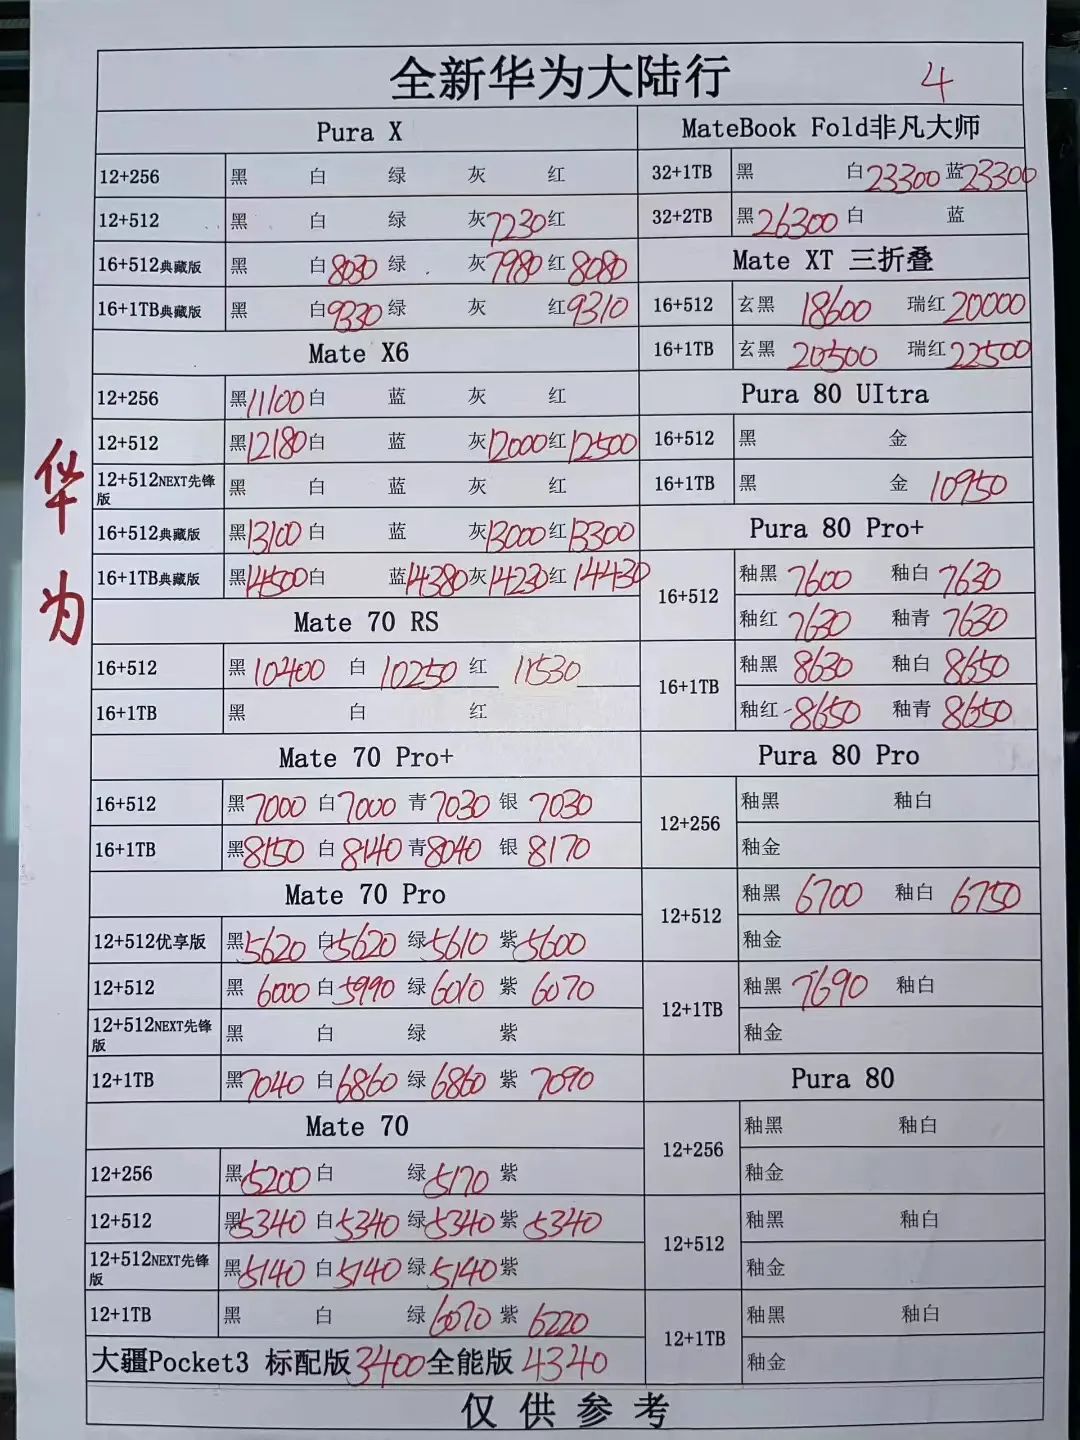 全新华为大陆行 4
华为
Pura X
12+256 黑 白 绿 灰 红
12+512 黑 白 绿 灰7230 红
16+512典藏版 黑 白8030 绿 灰7980 红8080
16+1TB典藏版 黑 白9330 绿 灰 红9310
Mate X6
12+256 黑11100 白 蓝 灰 红
12+512 黑12180 白 蓝 灰12000 红12500
12+512NEXT先锋版 黑 白 蓝 灰 红
16+512典藏版 黑13100 白 蓝 灰13000 红13300
16+1TB典藏版 黑14500 白 蓝14380 灰14230 红14430
Mate 70 RS
16+512 黑10400 白10250 红11530
16+1TB 黑 白 红
Mate 70 Pro+
16+512 黑7000 白7000 青7030 银7030
16+1TB 黑8150 白8140 青8040 银8170
Mate 70 Pro
12+512优享版 黑5620 白5620 绿5610 紫5600
12+512 黑6000 白5990 绿6010 紫6070
12+512NEXT先锋版 黑 白 绿 紫
12+1TB 黑7040 白6860 绿6860 紫7090
Mate 70
12+256 黑5200 白 绿5170 紫
12+512 黑5340 白5340 绿5340 紫5340
12+512NEXT先锋版 黑5140 白5140 绿5140 紫
12+1TB 黑 白 绿6070 紫6220
大疆Pocket3 标配版3400 全能版4340
MateBook Fold非凡大师
32+1TB 黑 白23300 蓝23300
32+2TB 黑26300 白 蓝
Mate XT 三折叠
16+512 玄黑18600 瑞红20000
16+1TB 玄黑20500 瑞红22500
Pura 80 UItra
16+512 黑 金
16+1TB 黑 金10950
Pura 80 Pro+
16+512 釉黑7600 釉白7630
釉红7630 釉青7630
16+1TB 釉黑8630 釉白8650
釉红8650 釉青8650
Pura 80 Pro
12+256 釉黑 釉白
釉金
12+512 釉黑6700 釉白6750
釉金
12+1TB 釉黑7690 釉白
釉金
Pura 80
12+256 釉黑 釉白
釉金
12+512 釉黑 釉白
釉金
12+1TB 釉黑 釉白
釉金
仅供参考